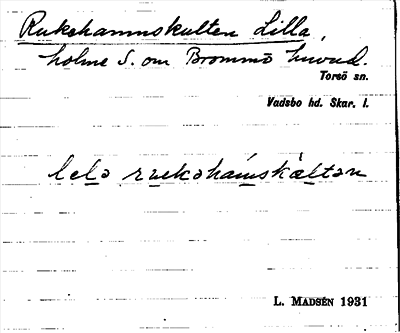 Rukehamnskulten Lilla,
holme S. om Brommö huvud.
Torsö sn.
Vadsbo hd. Skar. l.
lelə rukəhamskàltən
L. MADSÉN 1931